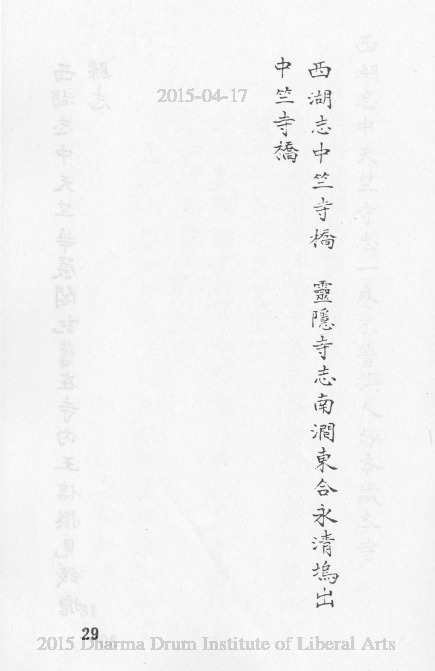 西湖志中竺寺橋　靈隱寺志南澗東合永清塢出
中竺寺橋
2015-04-17
29
2015 Dharma Drum Institute of Liberal Arts